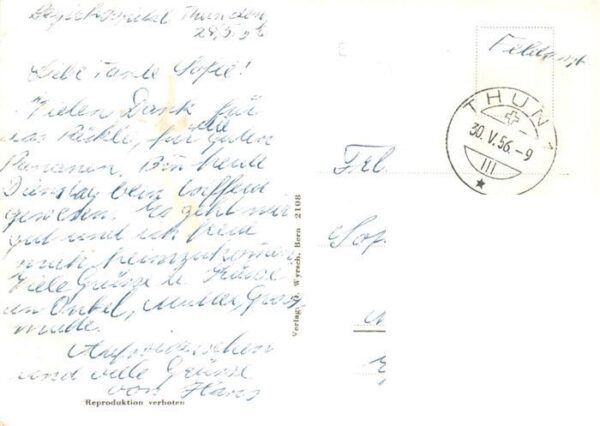 Bezirksspital Thun den
29.5.56
Liebe Tante Sofie!
Vielen Dank für
das Päckli, für
die guten
Bananen. Bin heute
Dienstag beim
gewesen. Es geht mir
gut und ich freue
mich heimzukommen.
Viele Grüsse u. Küsse
an Onkel, Mutter, Gross
mutter.
Aufwiedersehen
und viele Grüsse
von Hans
Reproduktion verboten
Verlag G. Wyrsch, Bern 2108
Feldpost
THUN 1
30.V.56.-9
III
Frl.
Sof